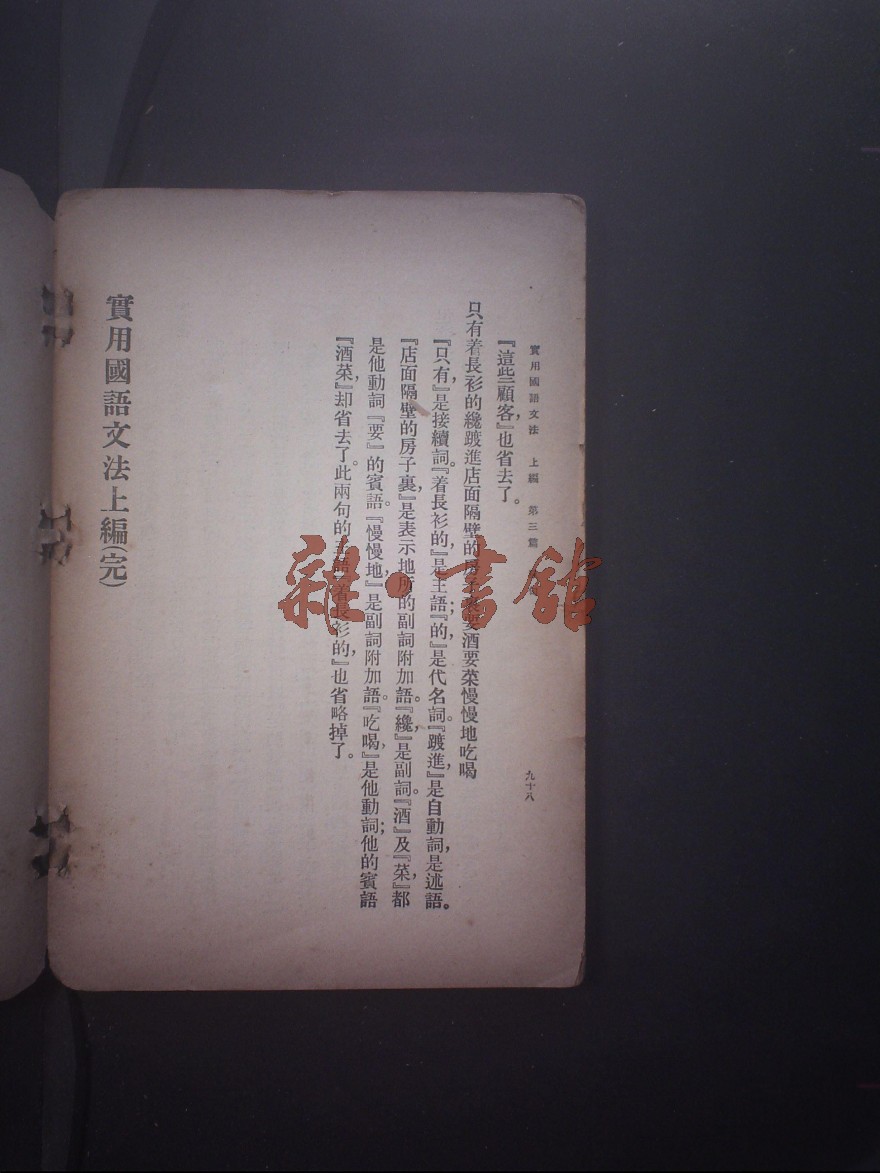 實用國語文法 上編 第三篇
九十八
『這些顧客』也省去了。
只有着長衫的纔踱進店面隔壁的房子裏要酒要菜慢慢地吃喝
『只有』是接續詞。『着長衫的』是主語；『的』是代名詞。『踱進』是自動詞，是述語。
『店面隔壁的房子裏』是表示地所的副詞附加語。『纔』是副詞。『酒』及『菜』都
是他動詞『要』的賓語。『慢慢地』是副詞附加語。『吃喝』是他動詞；他的賓語
『酒菜』却省去了。此兩句的主語『着長衫的』也省略掉了。
實用國語文法上編(完)
雜·書館